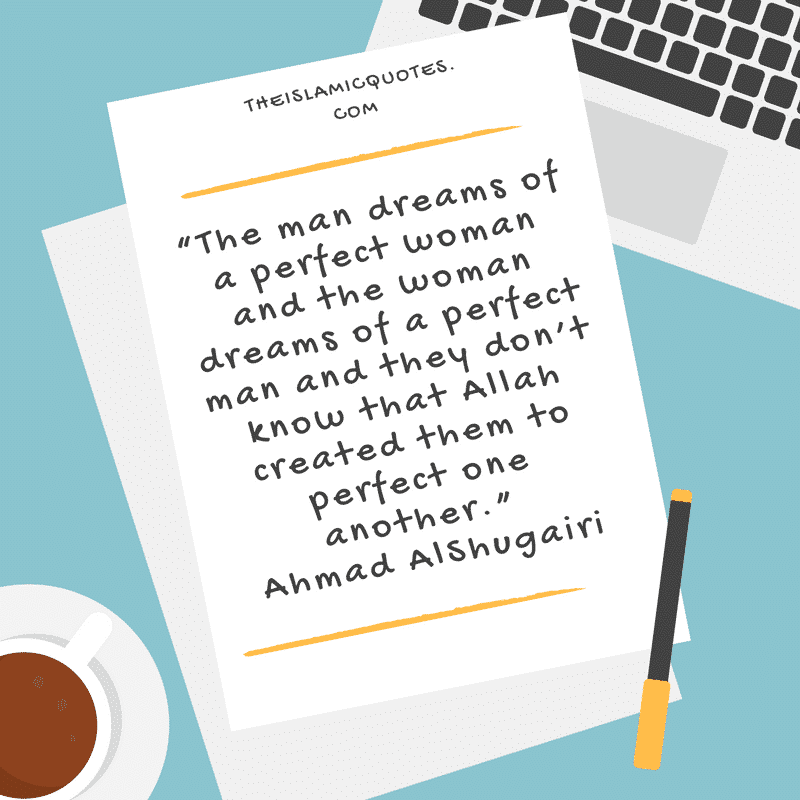 THEISLAMICQUOTES.
COM
"The man dreams of
a perfect woman
and the woman
dreams of a perfect
man and they don't
know that Allah
created them to
perfect one
another."
Ahmad AlShugairi